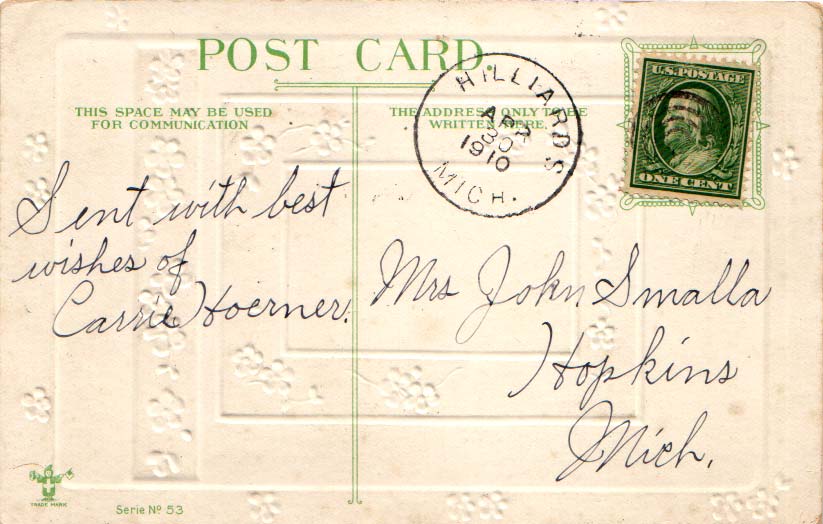 POST CARD.
THIS SPACE MAY BE USED
FOR COMMUNICATION
THE ADDRESS ONLY TO BE
WRITTEN HERE.
HILLIARDS
APR
30
1910
MICH.
U.S. POSTAGE
ONE CENT
Sent with best
wishes of
Carrie Hoerner.
Mrs John Smalla
Hopkins
Mich.
TRADE MARK
Serie No 53